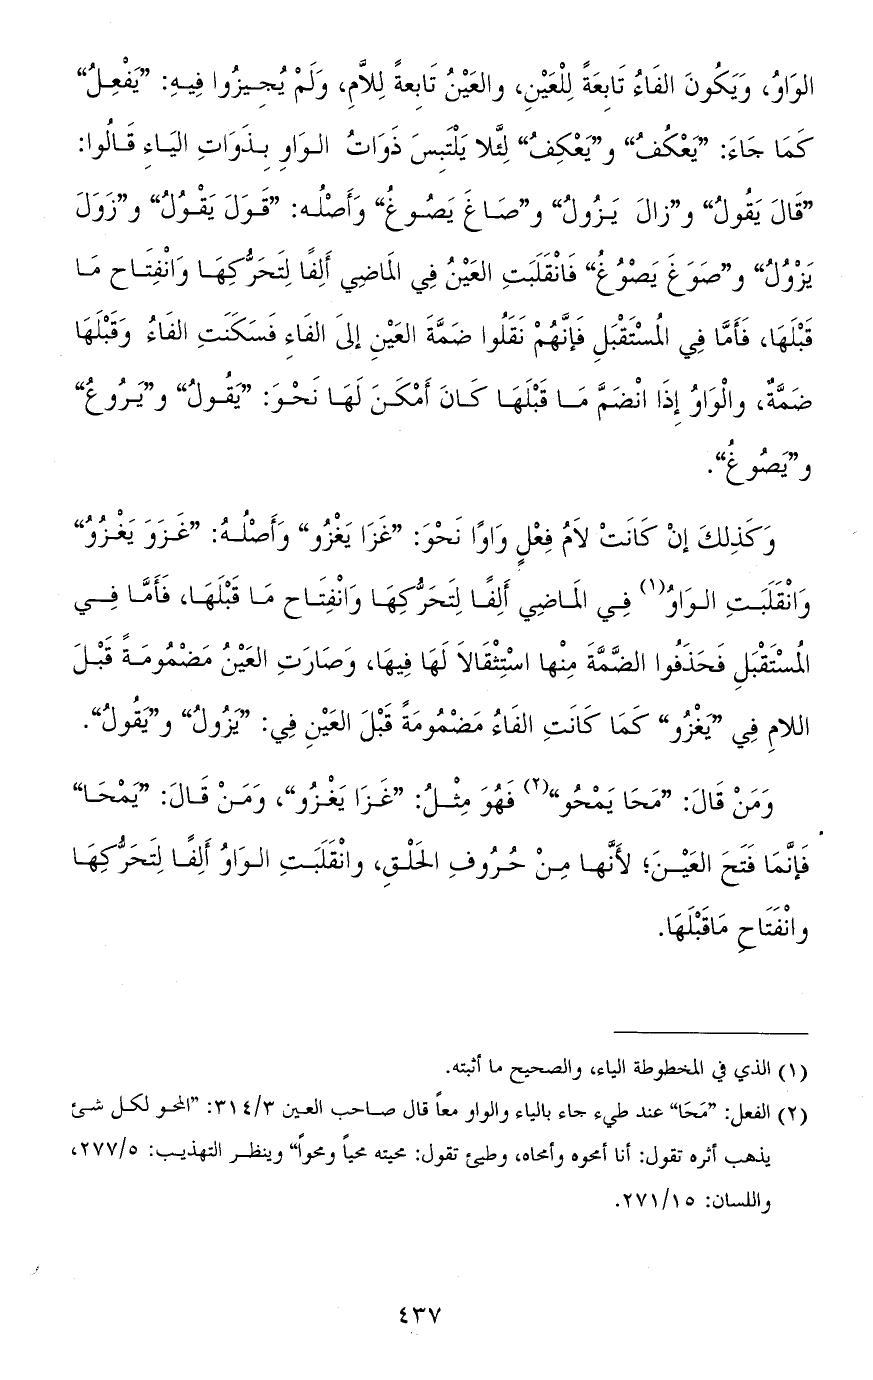 الوَاوُ، وَيَكُونَ الفَاءُ تَابِعَةً لِلْعَيْنِ، والعَيْنُ تَابعةً لِلاَّمِ، وَلَمْ يُجِيزُوا فِيهِ: ”يَفْعِلُ“
كَمَا جَاءَ: ”يَعْكُفُ“ و”يَعْكِفُ“ لِئَلا يَلْتَبِسَ ذَوَاتُ الوَاوِ بِذَوَاتِ اليَاءِ قَالُوا:
”قَالَ يَقُولُ“ و”زالَ يَزُولُ“ و”صَاغَ يَصُوغُ“ وَأَصْلُه: ”قَوَلَ يَقْوُلُ“ و”زَوَلَ
يَزْوُلُ“ و”صَوَغَ يَصْوُغُ“ فَانْقَلَبَتِ العَيْنُ فِي المَاضِي أَلِفًا لِتَحَرُّكِهَا وَانْفِتَاحِ مَا
قَبْلَهَا، فَأَمَّا فِي المُسْتَقْبَلِ فَإِنَّهُمْ نَقَلُوا ضَمَّةَ العَيْنِ إِلىَ الفَاءِ فَسَكَنَتِ الفَاءُ وَقَبْلَهَا
ضَمَّةٌ، والْوَاوُ إِذَا انْضَمَّ مَا قَبْلَهَا كَانَ أَمْكَنَ لَهَا نَحْوَ: ”يَقُولُ“ و”يَرُوعُ“
و”يَصُوغُ“.
وَكَذلِكَ إِنْ كَانَتْ لاَمُ فِعْلٍ وَاوًا نَحْوَ: ”غَزَا يَغْزُو“ وَأَصْلُهُ: ”غَزَوَ يَغْزُوُ“
وَانْقَلَبَتِ الوَاوُ(١) فِي المَاضِي أَلِفًا لِتَحَرُّكِهَا وَانْفِتَاحِ مَا قَبْلَهَا، فَأَمَّا فِي
المُسْتَقْبَلِ فَحَذَفُوا الضَّمَّةَ مِنْها اسْتِثْقَالاَ لَهَا فِيهَا، وَصَارَتِ العَيْنُ مَضْمُومَةً قَبْلَ
اللامِ فِي ”يَغْزُو“ كَمَا كَانَتِ الفَاءُ مَضْمُومَةً قَبْلَ العَيْنِ فِي: ”يَزُولُ“ و”يَقُولُ“.
وَمَنْ قَالَ: ”مَحَا يَمْحُو“(٢) فَهُوَ مِثْلُ: ”غَزَا يَغْزُو“، وَمَنْ قَالَ: ”يَمْحَا“
فَإِنَّمَا فَتَحَ العَيْنَ؛ لأَنَّها مِنْ حُرُوفِ الحَلْقِ، وانْقَلَبَتِ الوَاوُ أَلِفًا لِتَحَرُّكِهَا
وانْفَتَاحِ مَاقَبْلَهَا.
(١) الذي في المخطوطة الياء، والصحيح ما أثبته.
(٢) الفعل: ”مَحَا“ عند طيء جاء بالياء والواو معاً قال صاحب العين ٣١٤/٣: ”المحو لكل شئ
يذهب أثره تقول: أنا أمحوه وأمحاه، وطيئ تقول: محيته محياً ومحواً“ وينظر التهذيب: ٢٧٧/٥،
واللسان: ٢٧١/١٥.
٤٣٧